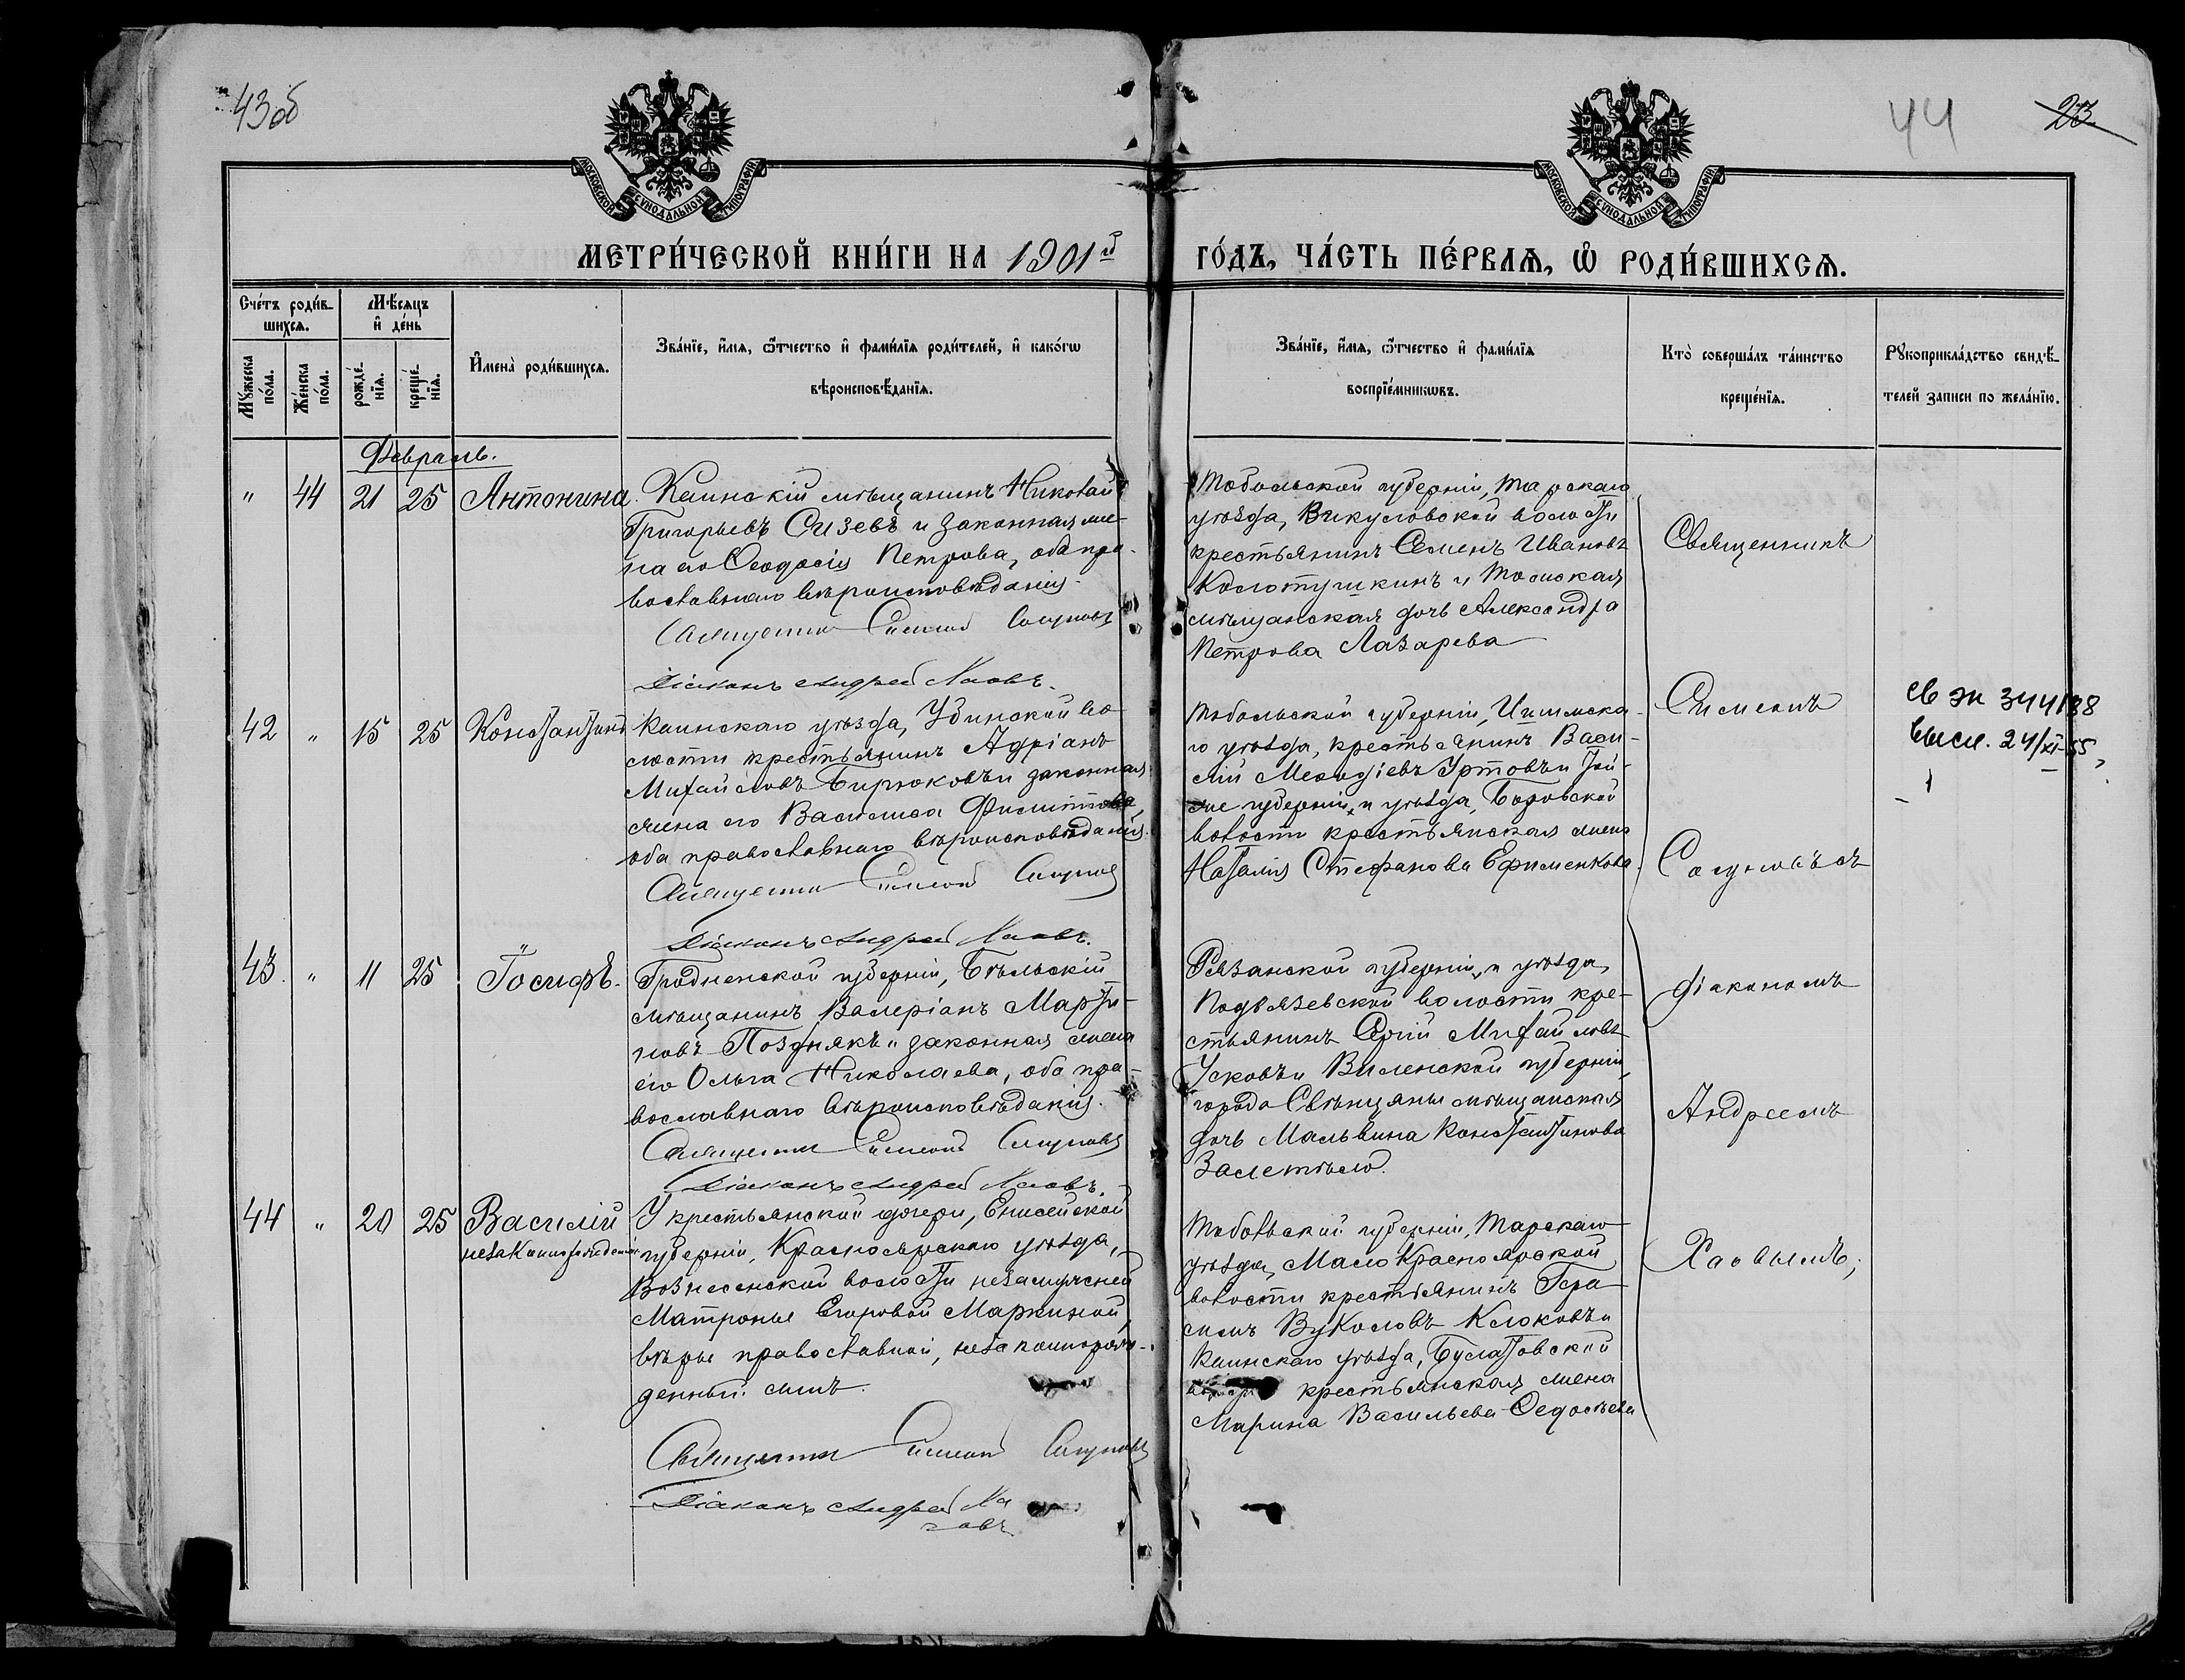 43об
44
23.
МОСКОВСКОЙ СѴНОДАЛЬНОЙ ТИПОГРАФІИ
МОСКОВСКОЙ СѴНОДАЛЬНОЙ ТИПОГРАФІИ
МЕТРИ́ЧЕСКОЙ КНИ́ГИ НА 1901й
ГО́ДЪ, ЧА́СТЬ ПЕ́РВАѦ, Ѡ҆ РОДИ́ВШИХСѦ.
Сче́тъ роди́в-
шихсѧ.
Мꙋ́жеска
по́ла.
Же́нска
по́ла.
Мѣ́сѧцъ
и҆ де́нь
рожде́-
нїѧ.
креще́-
нїѧ.
И҆мена̀ роди́вшихсѧ.
Зва́нїе, и҆́мѧ, ѻ҆́тчество и҆ фами́лїѧ роди́телей, и҆ како́гѡ
вѣроисповѣ́данїѧ.
Зва́нїе, и҆́мѧ, ѻ҆́тчество и҆ фами́лїѧ
воспрїе́мникѡвъ.
Кто̀ соверша́лъ та́инство
креще́нїѧ.
Рꙋкоприкла́дство свидѣ́-
телей записи по жела́нїю.
Февраль.
" 44 21 25 Антонина.
Каинскій мѣщанинъ Николай
Григорьевъ Сизевъ и законная же-
на его Ѳеодосія Петрова, оба пра-
вославнаго вѣроисповѣданія.
Священникъ Симеонъ
Діаконъ Андрей
Тобольской губерніи, Тарскаго
уѣзда, Викуловской волости
крестьянинъ Семенъ Ивановъ
Колотушкинъ и Томская
мѣщанская дочь Александра
Петрова Лазарева
Священникъ
42 " 15 25 Константинъ
Каинскаго уѣзда, Убинской во-
лости крестьянинъ Адріанъ
Михайловъ Бирюковъ и законная
жена его Василиса Филиппова,
оба православнаго вѣроисповѣданія.
Священникъ Симеонъ
Діаконъ Андрей
Тобольской губерніи, Ишимска-
го уѣзда, крестьянинъ Васи-
лій Меѳодіевъ Уртовъ и
губерніи и уѣзда,
волости крестьянская жена
Наталія Стефанова Ефименкова.
Симеонъ
св эн 344188
Высл. 24/XI-55,
43. " 11 25 Іосифъ.
Гродненской губерніи, Бѣльскій
мѣщанинъ Валеріанъ Марти-
новъ Позднякъ и законная жена
его Ольга Николаева, оба пра-
вославнаго вѣроисповѣданія.
Священникъ Симеонъ
Діаконъ Андрей
Рязанской губерніи и уѣзда,
Подвязевской волости кре-
стьянинъ Сергій Михайловъ
Усковъ и Виленской губерніи,
города Свѣнцяны мѣщанская
дочь Мальвина Константинова
діакономъ
Андреемъ
44 " 20 25 Василій
незаконнорожденный
У крестьянской дочери, Енисейской
губерніи, Красноярскаго уѣзда,
Вознесенской волости незамужней
Матроны Егоровой Маркиной,
вѣры православной, незаконнорож-
денный сынъ.
Священникъ Симеонъ
Діаконъ Андрей
Тобольской губерніи, Тарскаго
уѣзда, Мало Красноярской
волости крестьянинъ Гера-
симъ Вуколовъ Клюковъ и
Каинскаго уѣзда,
крестьянская жена
Марина Васильева Ѳедосѣева.